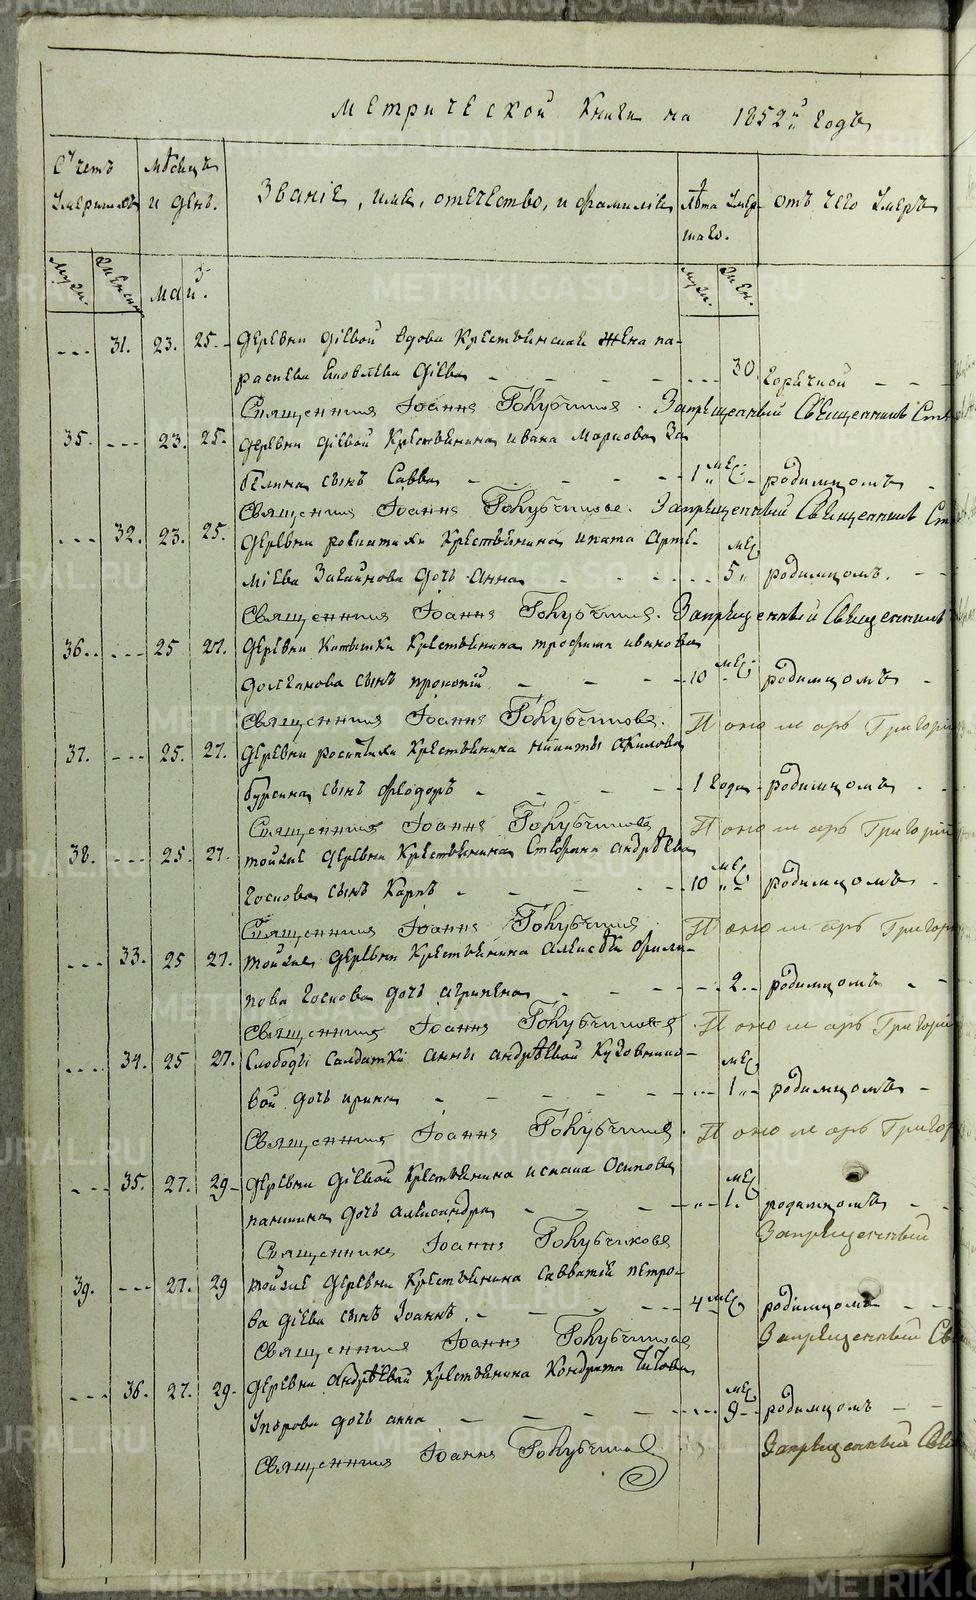 метрической книги на 1852й годъ
Счетъ умершихъ
Мѣсяцъ и день.
Званіе, имя, отечество, и фамилія
Лѣта умершаго.
отъ чего умеръ
муж. женск. май. муж. жен.
--- 31. 23. 25. деревни Діевой вдова крестьянская жена па-
расковья Яковлева Діева --- 30. горячкой
Священникъ Іоаннъ Голубчиковъ. Запрещенный Священникъ
35. --- 23. 25. деревни Діевой крестьянина Ивана Маркова За-
белина сынъ Савва 1 мес. родимцомъ
Священникъ Іоаннъ Голубчиковъ. Запрещенный Священникъ
--- 32. 23. 25. деревни крестьянина Ипата Арте-
міева дочь Анна --- 5 мес. родимцомъ.
Священникъ Іоаннъ Голубчиковъ. Запрещенный Священникъ
36. --- 25 27. деревни крестьянина трофима иванова
долганова сынъ прокопій 10 мес. родимцомъ
Священникъ Іоаннъ Голубчиковъ. Пономарь Григорій
37. --- 25. 27. деревни крестьянина никиты
сынъ феодоръ 1 годъ родимцомъ
Священникъ Іоаннъ Голубчиковъ Пономарь Григорій
38. --- 25. 27. тойже деревни крестьянина Стефана андрѣева
Госкова сынъ Карпъ 10 мес. родимцомъ
Священникъ Іоаннъ Голубчиковъ Пономарь Григорій
--- 33. 25 27. тойже деревни крестьянина Алексѣя фили-
пова Госкова дочь агрипена --- 2. родимцомъ
Священникъ Іоаннъ Голубчиковъ. Пономарь Григорій
--- 34. 25 27. Слободы Салдатки анны андрѣевой
вой дочь ирина --- 1 мес. родимцомъ
Священникъ Іоаннъ Голубчиковъ. Пономарь Григорій
--- 35. 27. 29 деревни Діевой крестьянина Осипова
паншина дочь александра 1. мес. родимцомъ
Священникъ Іоаннъ Голубчиковъ Запрещенный
39. --- 27. 29 тойже деревни крестьянина Савватія петро-
ва Діева сынъ Іоаннъ. 4 мес. родимцомъ
Священникъ Іоаннъ Голубчиковъ Запрещенный
--- 36. 27. 29. деревни Андрѣевой крестьянина Кондрата Титова
Упорова дочь анна --- 9 мес. родимцомъ
Священникъ Іоаннъ Голубчиковъ Запрещенный
METRIKI.GASO-URAL.RU